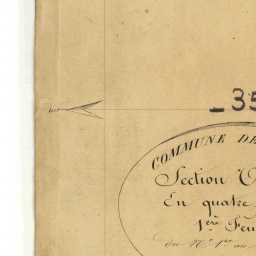 - 35
COMMUNE DE
Section
En quatre
1ère Feu
du N° 1er au